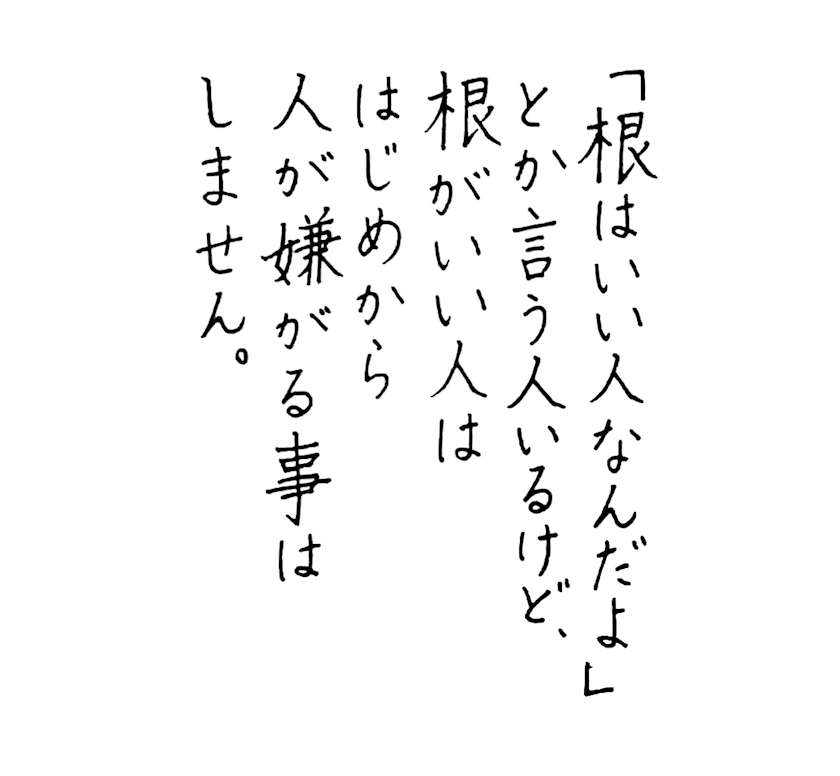 「根はいい人なんだよ」
とか言う人いるけど、
根がいい人は
はじめから
人が嫌がる事は
しません。